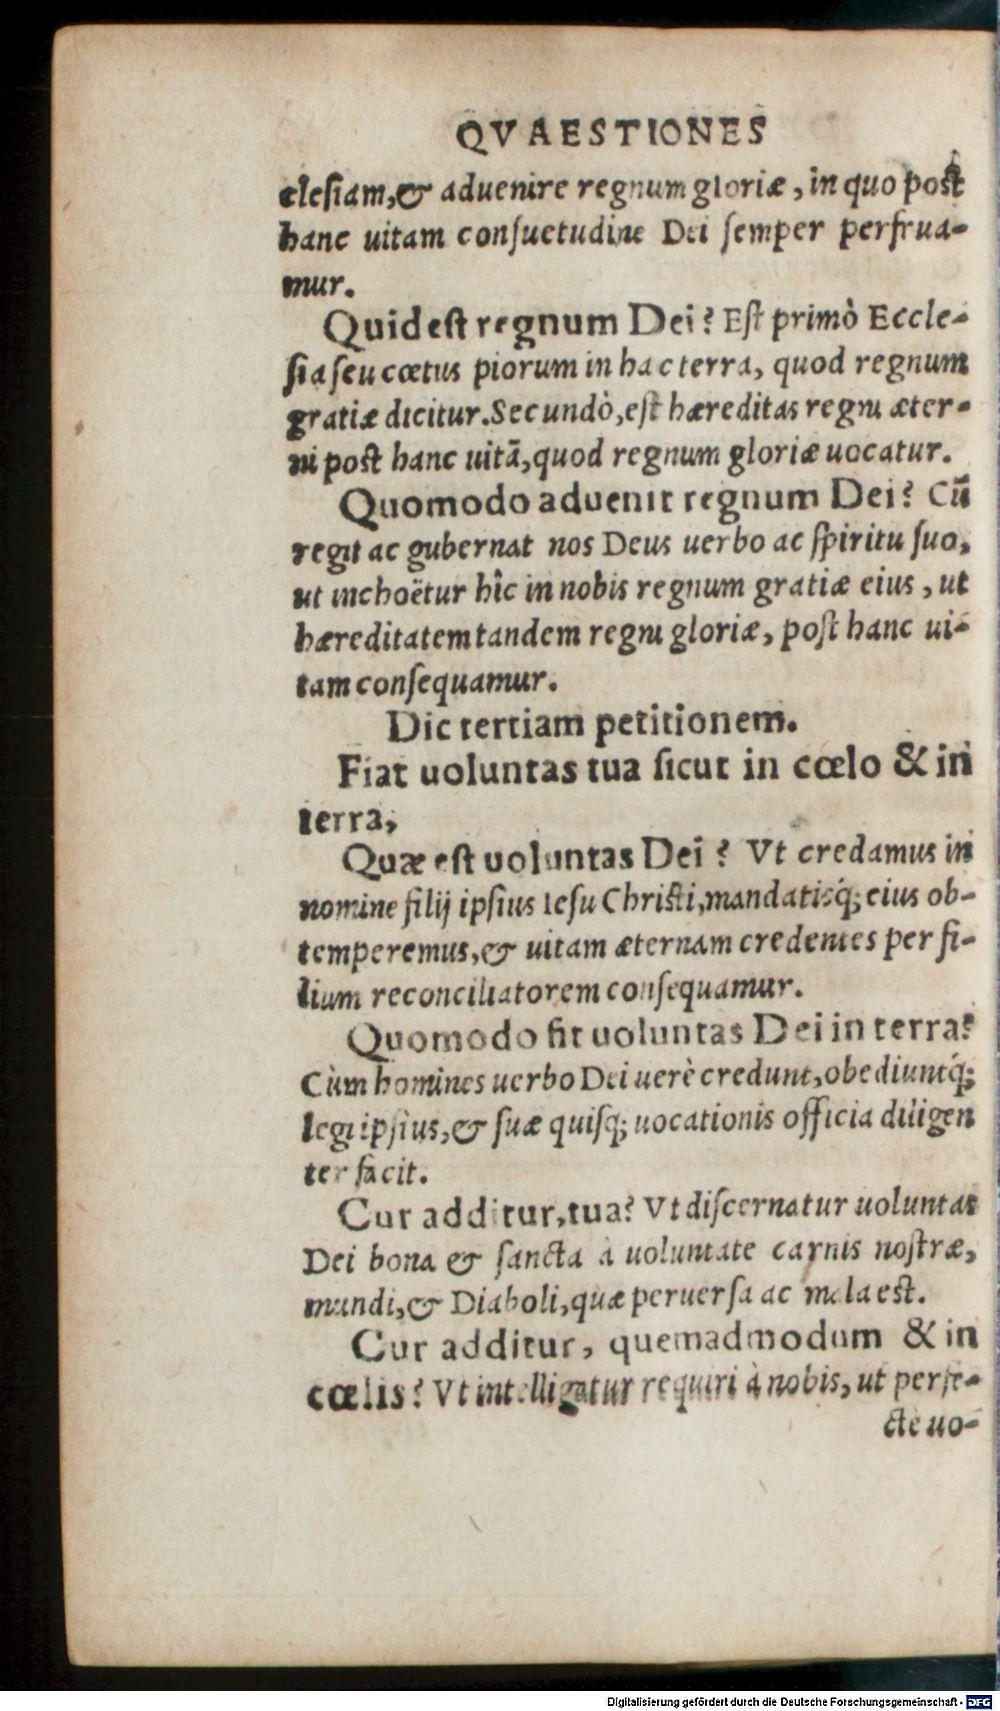 QVAESTIONES
clesiam,& aduenire regnum gloriæ, in quo post
hanc uitam consuetudine Dei semper perfrua-
mur.
Quid est regnum Dei? Est primò Eccle-
sia seu cœtus piorum in hac terra, quod regnum
gratiæ dicitur. Secundò, est hæreditas regni æter-
ni post hanc uitã, quod regnum gloriæ uocatur.
Quomodo aduenit regnum Dei? Cũ
regit ac gubernat nos Deus uerbo ac spiritu suo,
ut inchoëtur hîc in nobis regnum gratiæ eius, ut
hæreditatem tandem regni gloriæ, post hanc ui-
tam consequamur.
Dic tertiam petitionem.
Fiat uoluntas tua sicut in cœlo & in
terra,
Quæ est uoluntas Dei? Vt credamus in
nomine filij ipsius Iesu Christi, mandatisq́; eius ob-
temperemus,& uitam æternam credentes per fi-
lium reconciliatorem consequamur.
Quomodo fit uoluntas Dei in terra?
Cùm homines uerbo Dei uerè credunt, obediuntq́;
legi ipsius,& suæ quisq; uocationis officia diligen
ter facit.
Cur additur, tua? Vt discernatur uoluntas
Dei bona & sancta à uoluntate carnis nostræ,
mundi,& Diaboli, quæ peruersa ac mala est.
Cur additur, quemadmodum & in
cœlis? Vt intelligatur requiri à nobis, ut perfe-
ctè uo-
Digitalisierung gefördert durch die Deutsche Forschungsgemeinschaft - DFG